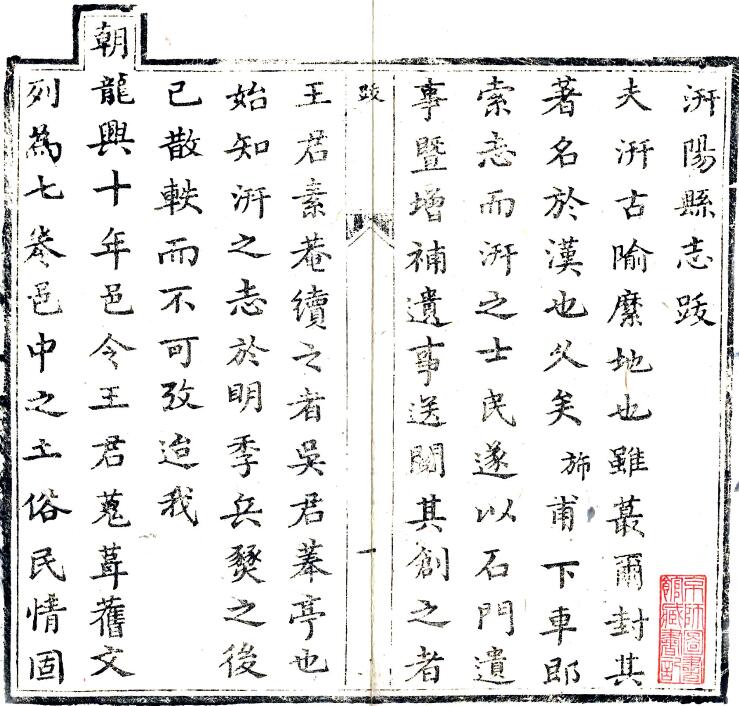 汧陽縣志跋
夫汧古隃麋地也雖蕞爾封其
著名於漢也久矣旆甫下車郎
索志而汧之士民遂以石門遺
事暨增補遺事送閱其創之者
跋
一
王君素菴續之者吳君菶亭也
始知汧之志於明季兵燹之後
已散軼而不可攷迨我
朝龍興十年邑令王君蒐葺舊文
列為七卷邑中之土俗民情固
京師圖書館藏書記